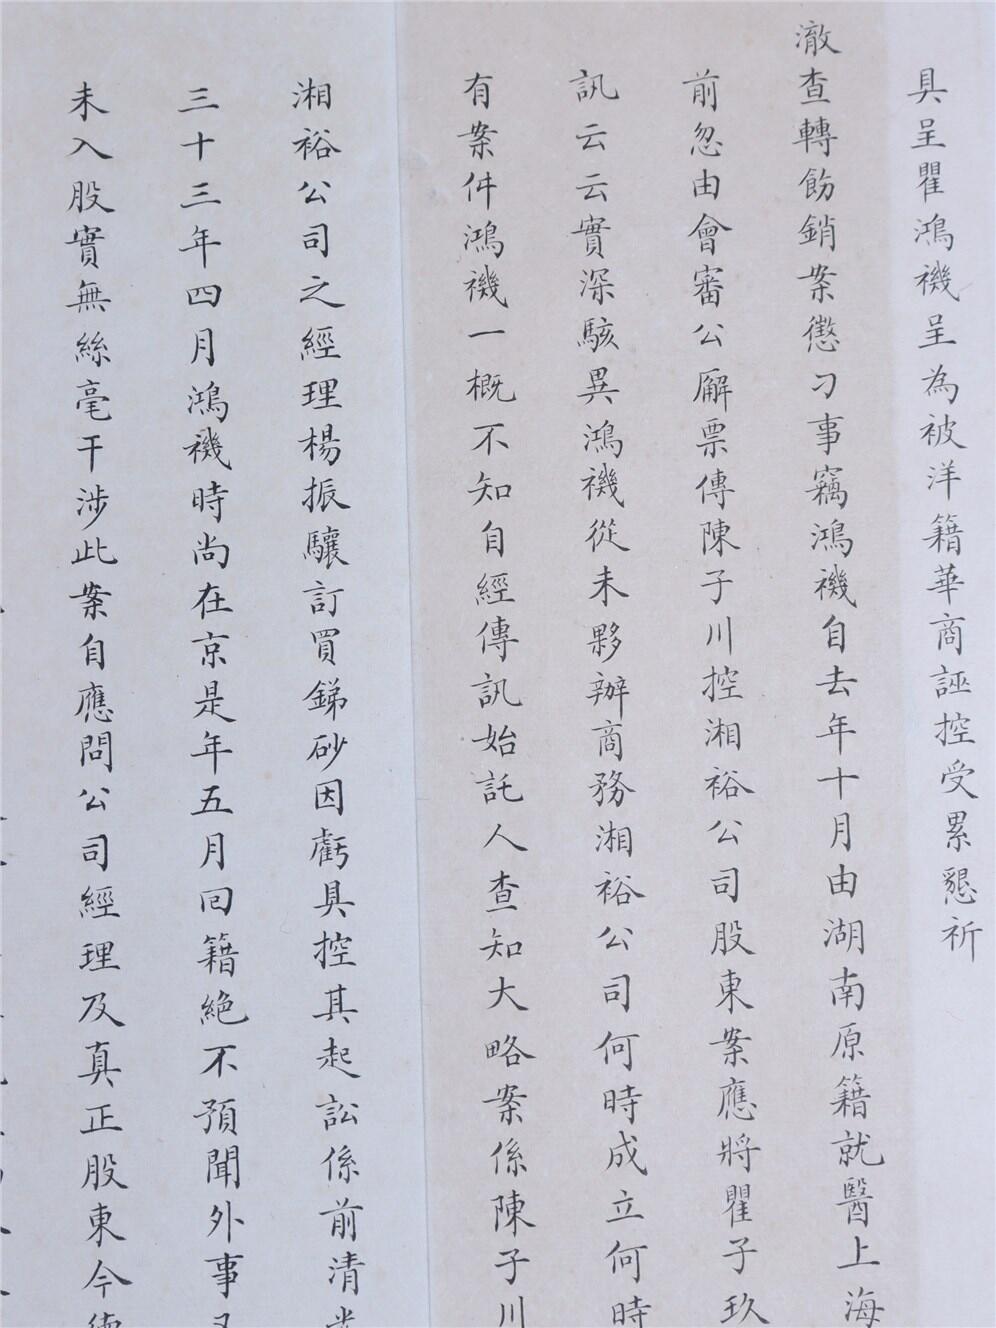 具呈瞿鴻禨呈為被洋籍華商誣控受累懇祈
澈查轉飭銷案懲刁事竊鴻禨自去年十月由湖南原籍就醫上海
前忽由會審公廨票傳陳子川控湘裕公司股東案應將瞿子玖
訊云云實深駭異鴻禨從未夥辦商務湘裕公司何時成立何時
有案件鴻禨一概不知自經傳訊始託人查知大略案係陳子川
湘裕公司之經理楊振驤訂買銻砂因虧具控其起訟係前清光
三十三年四月鴻禨時尚在京是年五月回籍絕不預聞外事又
未入股實無絲毫干涉此案自應問公司經理及真正股東今德